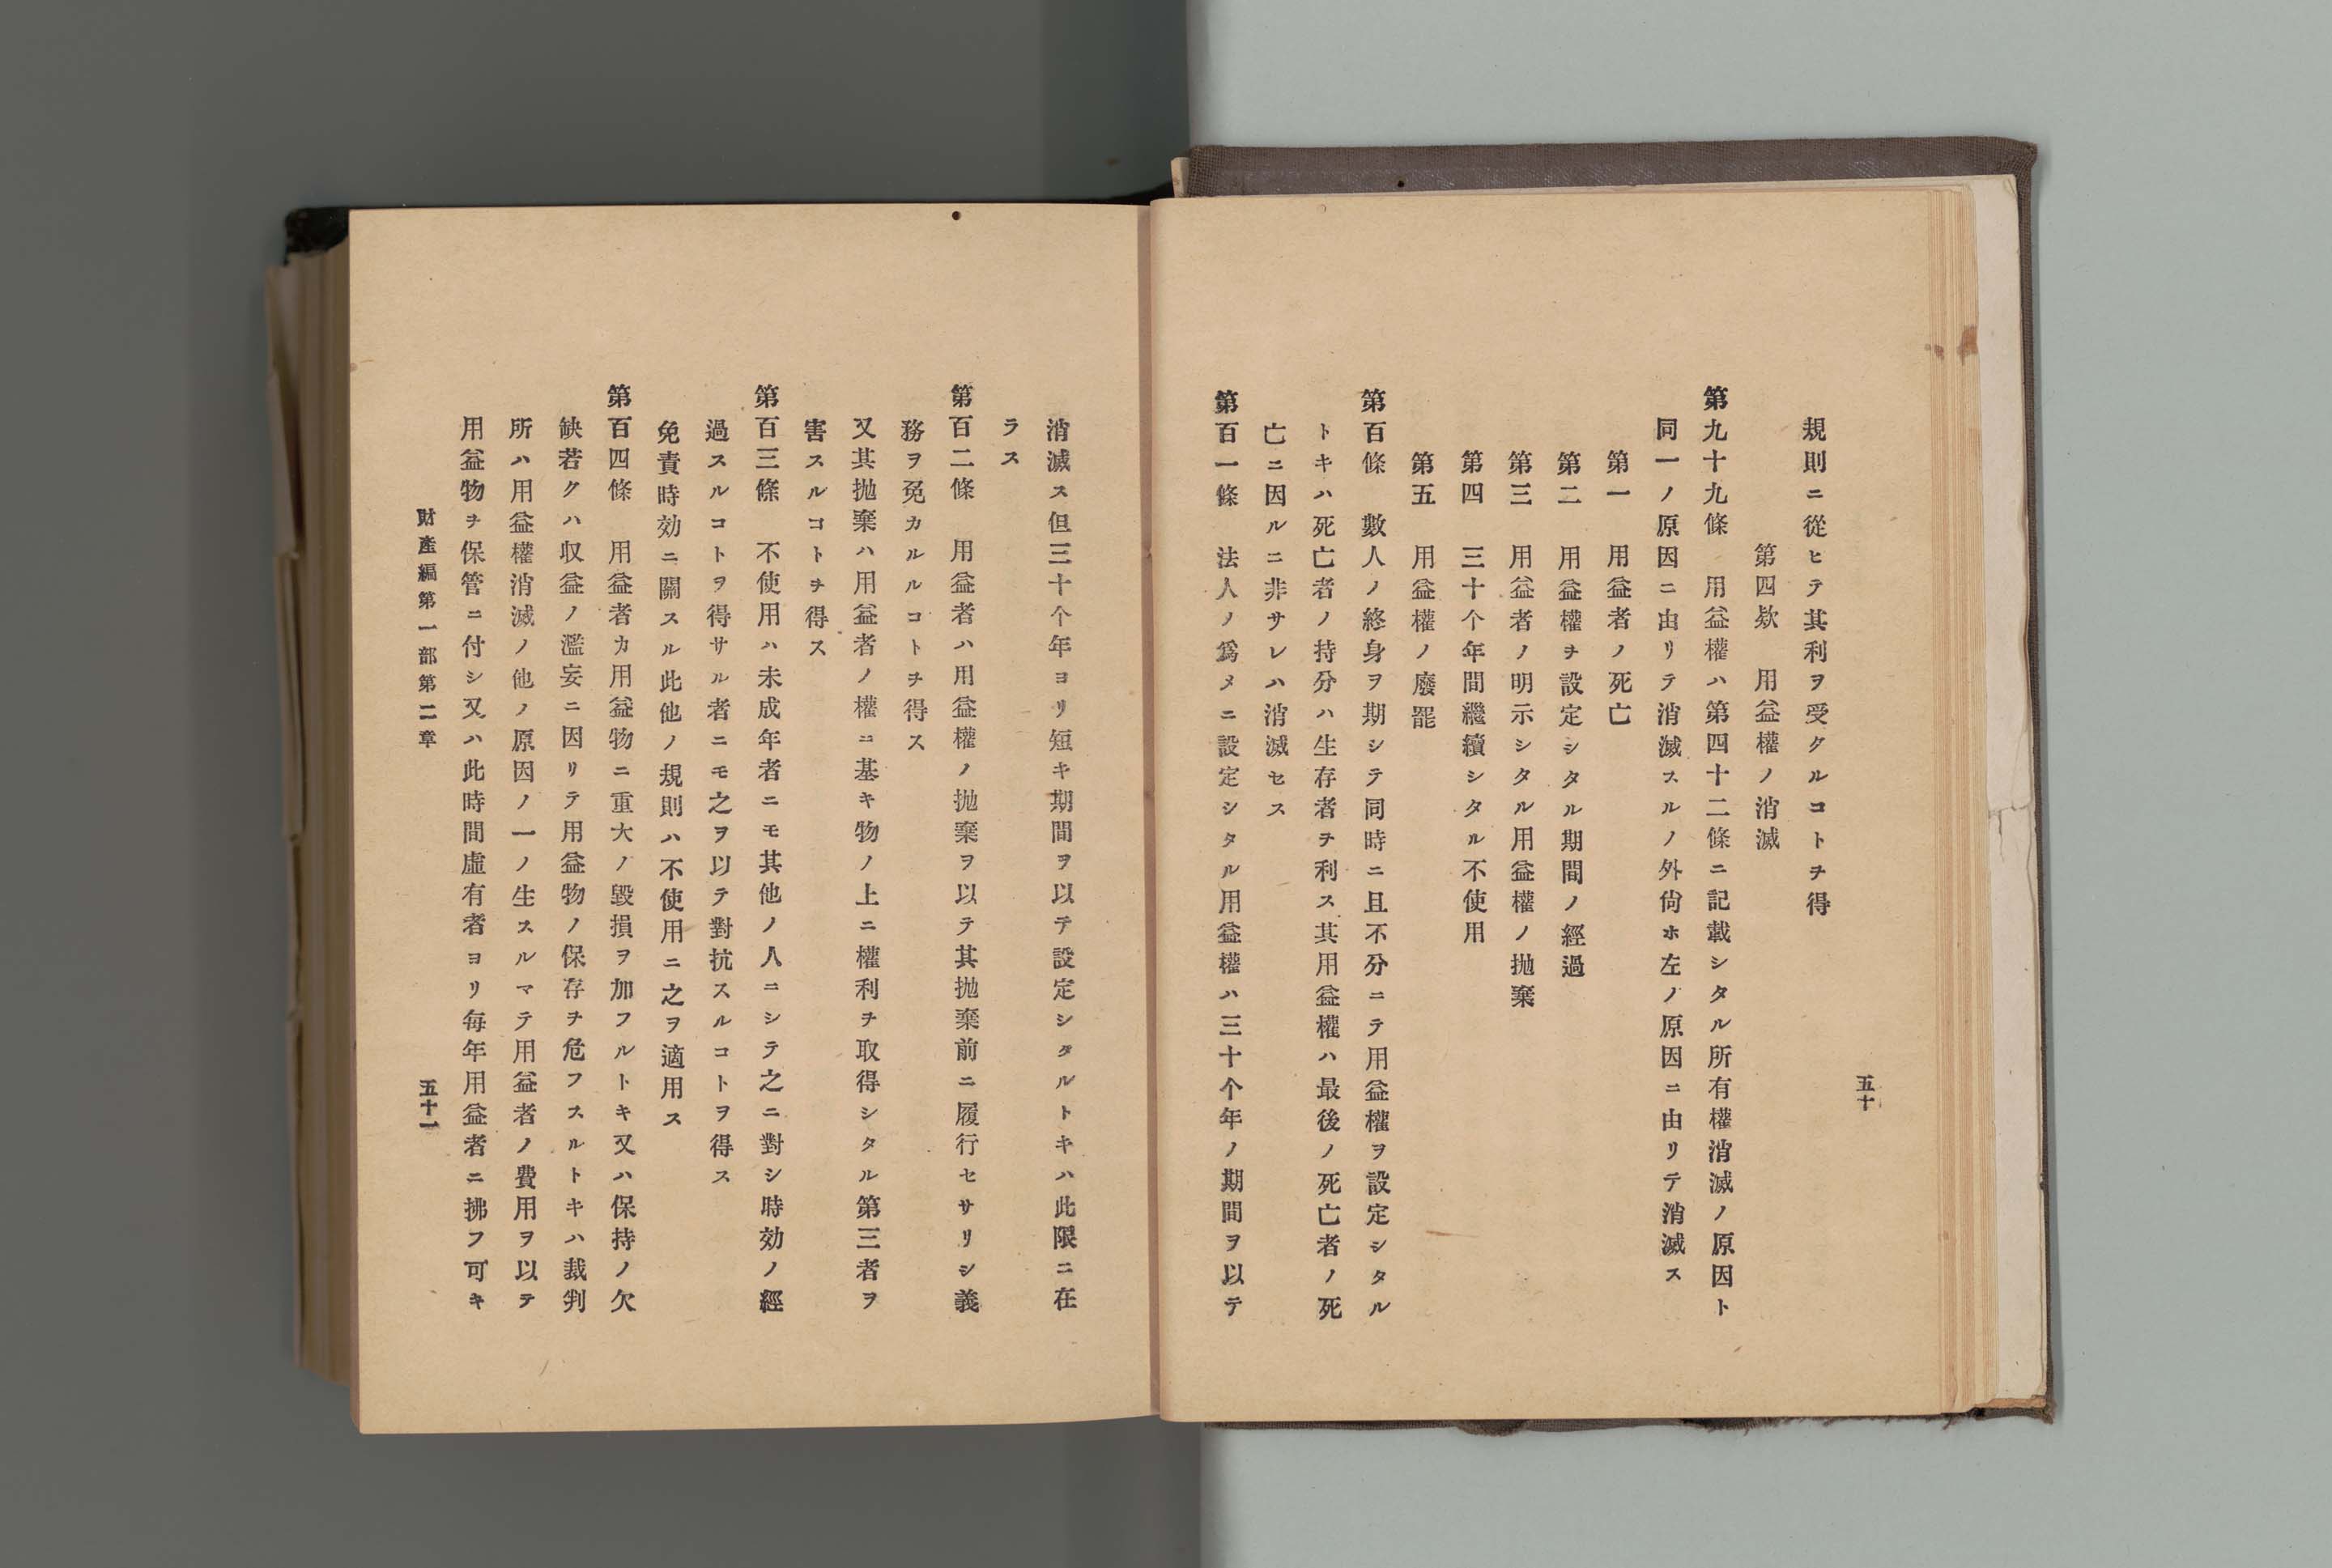 五十
規則ニ從ヒテ其利ヲ受クルコトヲ得
第四欵　用益權ノ消滅
第九十九條　用益權ハ第四十二條ニ記載シタル所有權消滅ノ原因ト
同一ノ原因ニ由リテ消滅スルノ外尙ホ左ノ原因ニ由リテ消滅ス
第一　用益者ノ死亡
第二　用益權ヲ設定シタル期間ノ經過
第三　用益者ノ明示シタル用益權ノ抛棄
第四　三十个年間繼續シタル不使用
第五　用益權ノ廢罷
第百條　數人ノ終身ヲ期シテ同時ニ且不分ニテ用益權ヲ設定シタル
トキハ死亡者ノ持分ハ生存者ヲ利ス其用益權ハ最後ノ死亡者ノ死
亡ニ因ルニ非サレハ消滅セス
第百一條　法人ノ爲メニ設定シタル用益權ハ三十个年ノ期間ヲ以テ
消滅ス但三十个年ヨリ短キ期間ヲ以テ設定シタルトキハ此限ニ在
ラス
第百二條　用益者ハ用益權ノ抛棄ヲ以テ其抛棄前ニ履行セサリシ義
務ヲ免カルルコトヲ得ス
又其抛棄ハ用益者ノ權ニ基キ物ノ上ニ權利ヲ取得シタル第三者ヲ
害スルコトヲ得ス
第百三條　不使用ハ未成年者ニモ其他ノ人ニシテ之ニ對シ時効ノ經
過スルコトヲ得サル者ニモ之ヲ以テ對抗スルコトヲ得ス
免責時効ニ關スル此他ノ規則ハ不使用ニ之ヲ適用ス
第百四條　用益者カ用益物ニ重大ノ毀損ヲ加フルトキ又ハ保持ノ欠
缺若クハ収益ノ濫妄ニ因リテ用益物ノ保存ヲ危フスルトキハ裁判
所ハ用益權消滅ノ他ノ原因ノ一ノ生スルマテ用益者ノ費用ヲ以テ
用益物ヲ保管ニ付シ又ハ此時間虛有者ヨリ每年用益者ニ拂フ可キ
財產編第一部第二章　五十一